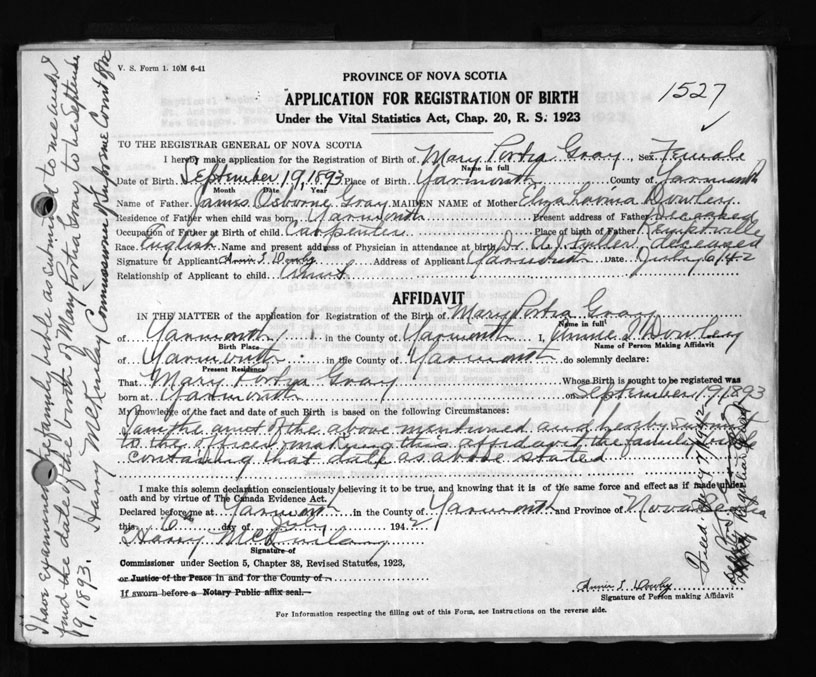 V. S. Form 1. 10M 6-41
PROVINCE OF NOVA SCOTIA
1527
APPLICATION FOR REGISTRATION OF BIRTH
Under the Vital Statistics Act, Chap. 20, R. S. 1923
TO THE REGISTRAR GENERAL OF NOVA SCOTIA
I hereby make application for the Registration of Birth of Mary Portia Gray, Sex Female
Name in full
Date of Birth September 19, 1893 Place of Birth Yarmouth County of Yarmouth
Month Date Year
Name of Father James Osborne Gray MAIDEN NAME of Mother Eliza Dowley
Residence of Father when child was born Yarmouth Present address of Father deceased
Occupation of Father at Birth of child Carpenter Place of birth of Father Kemptville
Race English Name and present address of Physician in attendance at birth Dr. A. J. Fuller, deceased
Signature of Applicant Annie S. Dowley Address of Applicant Yarmouth Date July 6/42
Relationship of Applicant to child Aunt
AFFIDAVIT
IN THE MATTER of the application for Registration of the Birth of Mary Portia Gray
Name in full
of Yarmouth in the County of Yarmouth I, Annie S. Dowley
Birth Place Name of Person Making Affidavit
of Yarmouth in the County of Yarmouth do solemnly declare:
Present Residence
That Mary Portia Gray Whose Birth is sought to be registered was
born at Yarmouth on September 19, 1893
My knowledge of the fact and date of such Birth is based on the following Circumstances:
I am the aunt of the above mentioned and hereby submit
to the officer making this affidavit the family bible
containing that date as above stated
I make this solemn declaration conscientiously believing it to be true, and knowing that it is of the same force and effect as if made under
oath and by virtue of The Canada Evidence Act.
Declared before me at Yarmouth in the County of Yarmouth and Province of Nova Scotia
this 6th day of July 1942
Harry McKinlay
Signature of
Commissioner under Section 5, Chapter 38, Revised Statutes, 1923,
or Justice of the Peace in and for the County of
If sworn before a Notary Public affix seal.
Annie S. Dowley
Signature of Person making Affidavit
For Information respecting the filling out of this Form, see Instructions on the reverse side.
I have examined the family bible as submitted to me and I
find the date of the birth of Mary Portia Gray to be September
19, 1893. Harry McKinlay Commissioner of Supreme Court